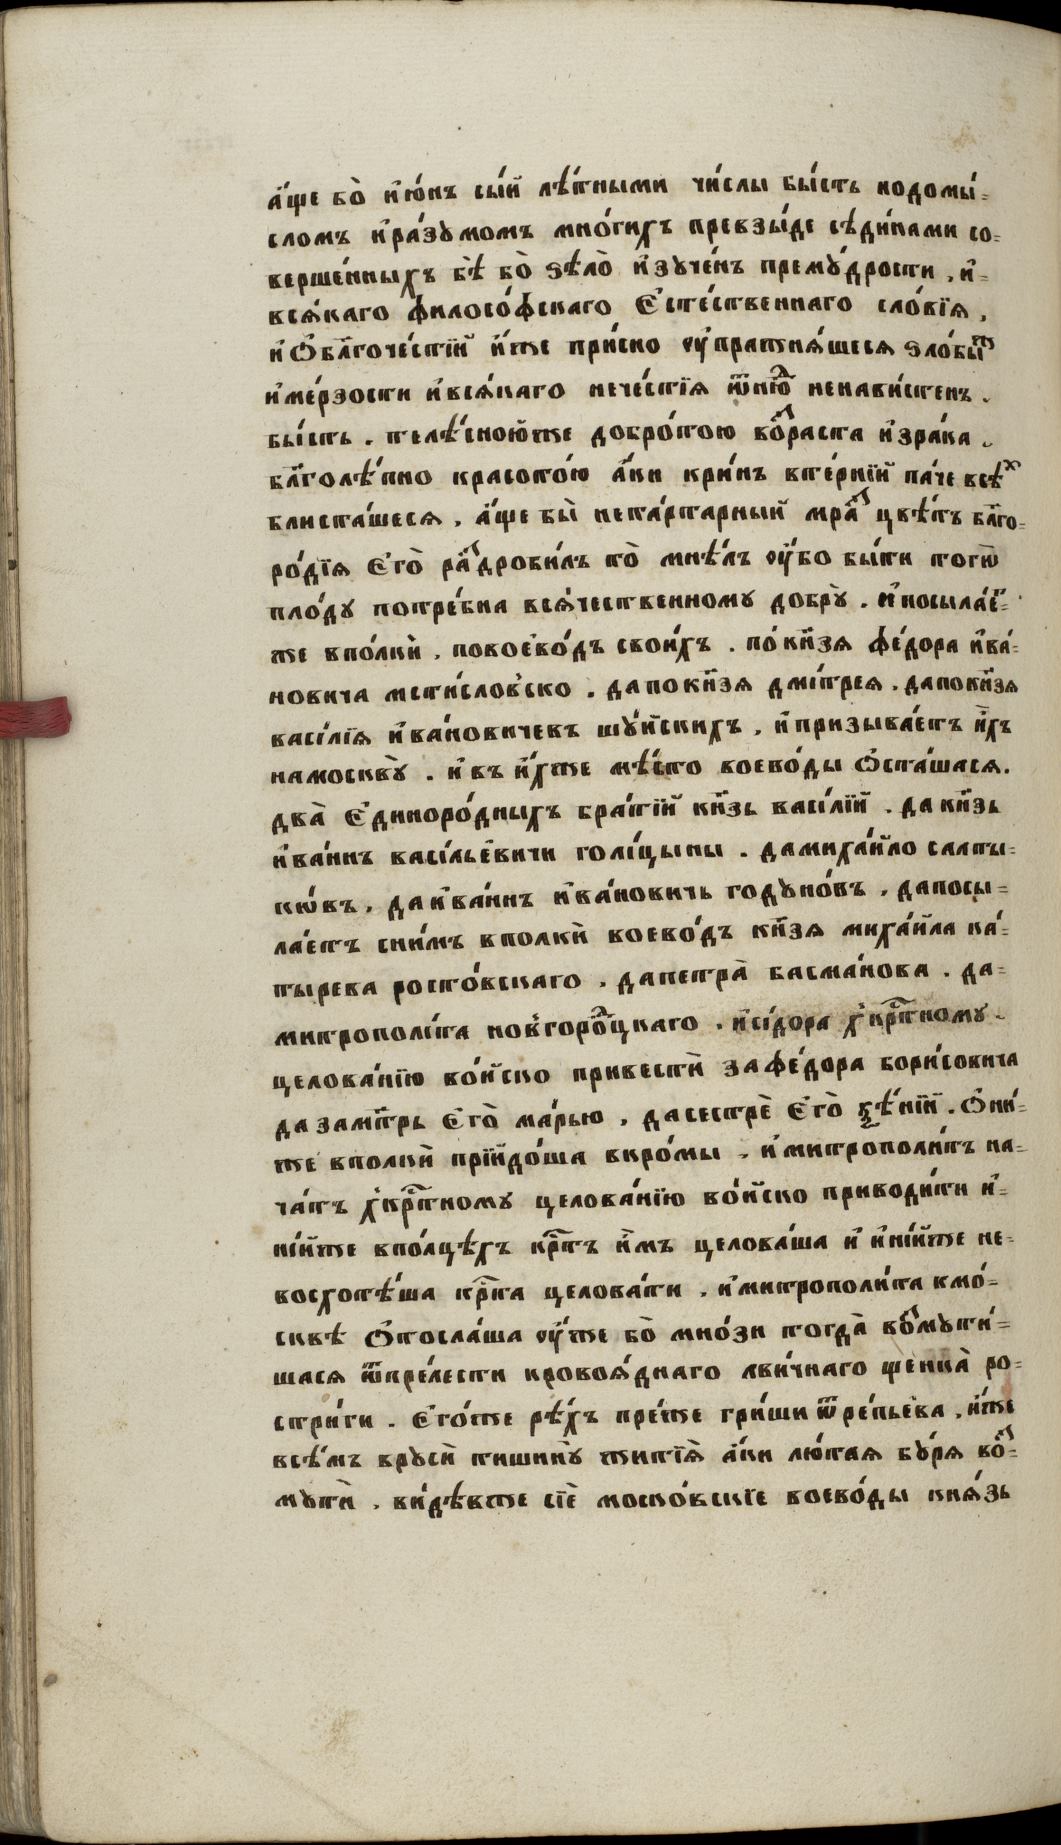 а҆́ще бо̀ и҆ ю҆́нъ сы́й лѣ́тными чи́слы бы́сть нодомы́-
сломъ и҆ ра́зꙋмомъ мно́гихъ превзы́де сѣди́нами со-
верше́нныхъ бѣ̀ бо̀ ѕѣло̀ и҆зꙋче́нъ премꙋ́дрости , и҆
вся́каго филосо́фскаго є҆сте́ственнаго сло́вїѧ ,
и҆ ѡ҆ бл҃гоче́стїй и҆́же при́сно ᲂу҆пражнѧ́шесѧ ѕло́бы ж
и҆ ме́рзости и҆ всѧ́каго нече́стїѧ ѿню́д ненави́стенъ .
бы́сть . тѣлѣ́сною́же добро́тою во́зраста и҆ зра́ка .
бл҃голѣ́пно красото́ю а҆́ки кри́нъ вте́рнїй па́че всѣ́х
блиста́шесѧ , а҆́ще бы̀ нета́ртарный мра́з цвѣ́тъ бл҃го-
ро́дїѧ є҆гѡ̀ раздроби́лъ то̀ мнѣ́лъ ᲂу҆́бо бы́ти тогѡ̀
плодꙋ̀ потре́бна всѧ́чественномꙋ добрꙋ̀ . и҆ посыла́ет-
же впо́лки̑ . повоево́дъ свои́хъ . по́кнѧзѧ фе́дора и҆ва́-
новича мсти́словско . дапокнѧ҃зѧ дми́трея . дапокнѧ҃зѧ
васи́лїѧ и҆ва́новичевъ шꙋ́йскихъ , и҆ призыва́етъ и҆́хъ
намосквꙋ̀ . и҆ въ и҆́хже мѣ́сто воево́ды ѡ҆ста́шасѧ .
два̀ є҆диноро́дныхъ бра́тїй кн҃зь васи́лїй . да кн҃зь
и҆ва́ннъ васи́льевичи голи́цыны . дамиха́йло салты-
ко́въ . да и҆ва́ннъ и҆ва́новичь годꙋно́въ . дапосы-
ла́етъ сни́мъ вполкѝ воево́дъ кн҃зѧ миха́йла ка́-
тырева росто́вскаго . дапетра̀ басма́нова . да-
митрополи́та новгоро́дцкаго . и҆си́дора хкрⷭ҇тномꙋ .
целова́нїю во́йско привестѝ зафе́дора бори́совича
да зам҃трь є҆гѡ̀ ма́рью , дасестрѐ є҆гѡ̀ ѯѣ́нїй . ѻ҆ни́-
же вполкѝ прїйдо́ша вкро́мы . и҆ митрополи́тъ на-
ча́тъ хкрⷭ҇тномꙋ целова́нїю во́йско приводи́ти и҆-
ні́йже впо́лцѣхъ крⷭ҇тъ и҆̀мъ целова́ша и҆ и҆ні́йже не-
восхотѣ́ша крⷭ҇та целова́ти . и҆ митрополи́та кмо́-
сквѣ ѿ҆посла́ша ᲂу҆́же бо̀ мно́зи тогда̀ возмꙋти́-
шасѧ ѿпре́лести кровоѧ́днаго лви́чнаго щенка̀ ро-
стри́ги . є҆го́же рѣ́хъ пре́же гри́ши ѿре́пьева , и҆́же
всѣ́мъврꙋсѝ тишинꙋ̀ житїѧ̀ а҆́ки лю́таѧ бꙋ́рѧ воз-
мꙋтѝ . ви́дѣвже сїѐ моско́вскїе воево́ды кнѧ́зь